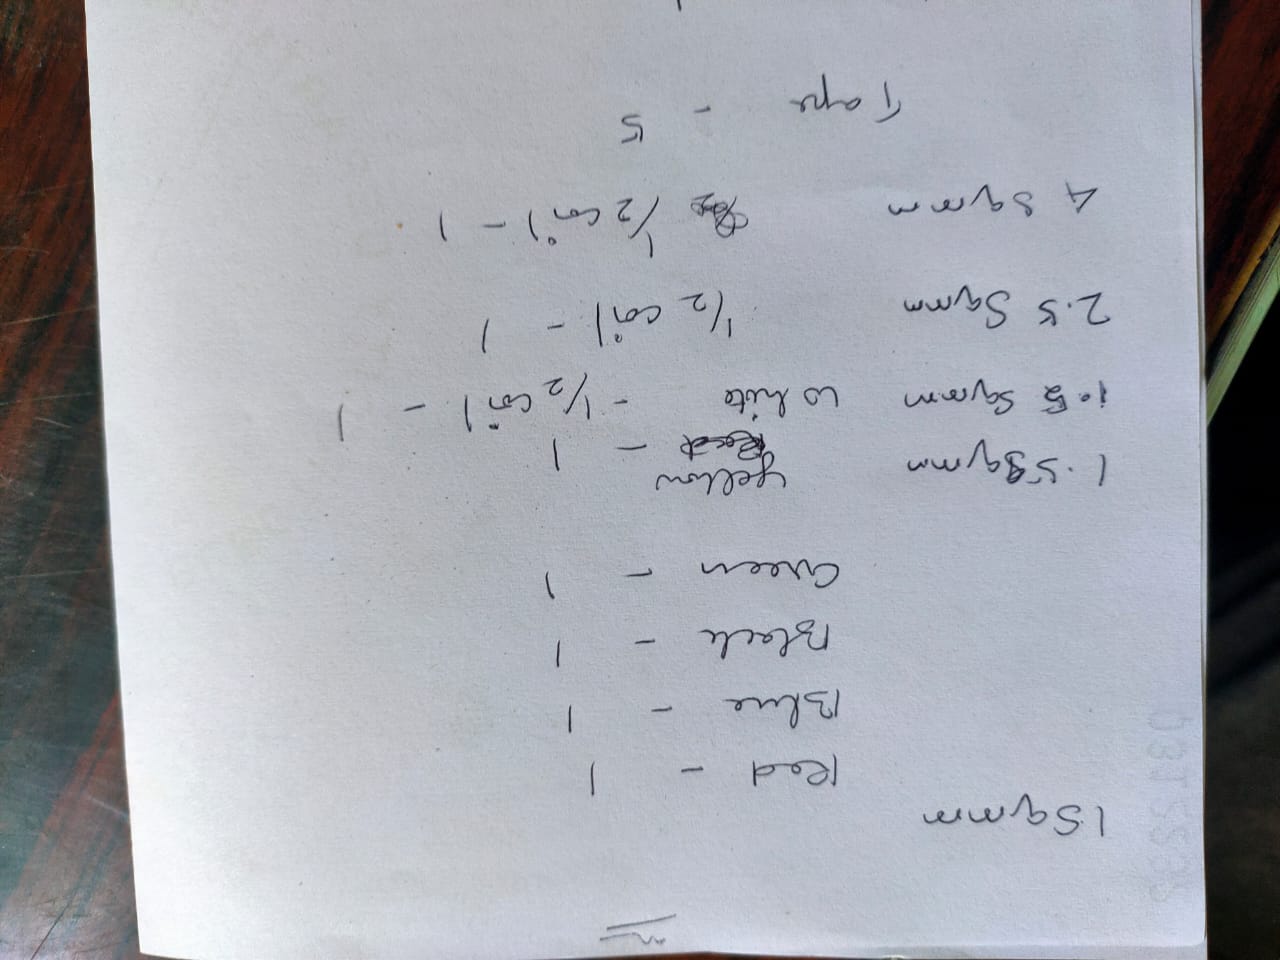 1 Sqmm
Red - 1
Blue - 1
Black - 1
Green - 1
1.5 Sqmm Yellow - 1
1.5 Sqmm White - 1/2 coil - 1
2.5 Sqmm 1/2 coil - 1
4 Sqmm 1/2 coil - 1
Tape - 5